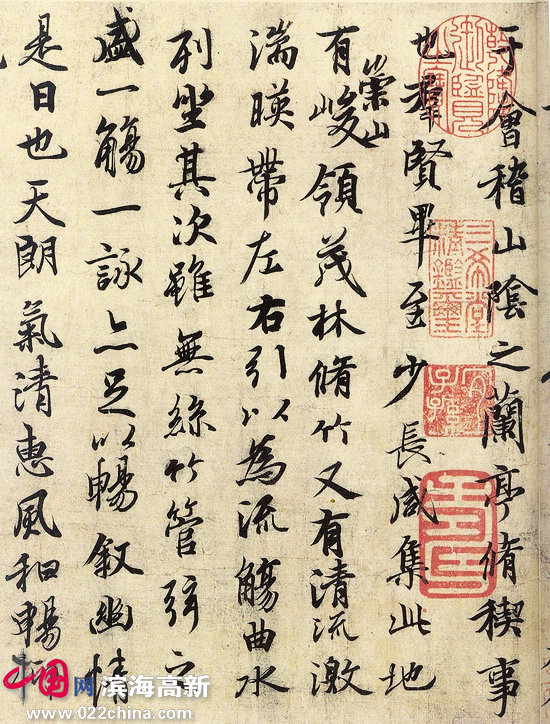 于會稽山陰之蘭亭脩稧事
也羣賢畢至少長咸集此地
有崇山峻領茂林脩竹又有清流激
湍暎帶左右引以為流觴曲水
列坐其次雖無絲竹管弦之
盛一觴一詠亦足以暢敘幽情
是日也天朗氣清惠風和暢
三希堂精鑒璽
宜子孫
中国网 滨海高新
www.022china.com